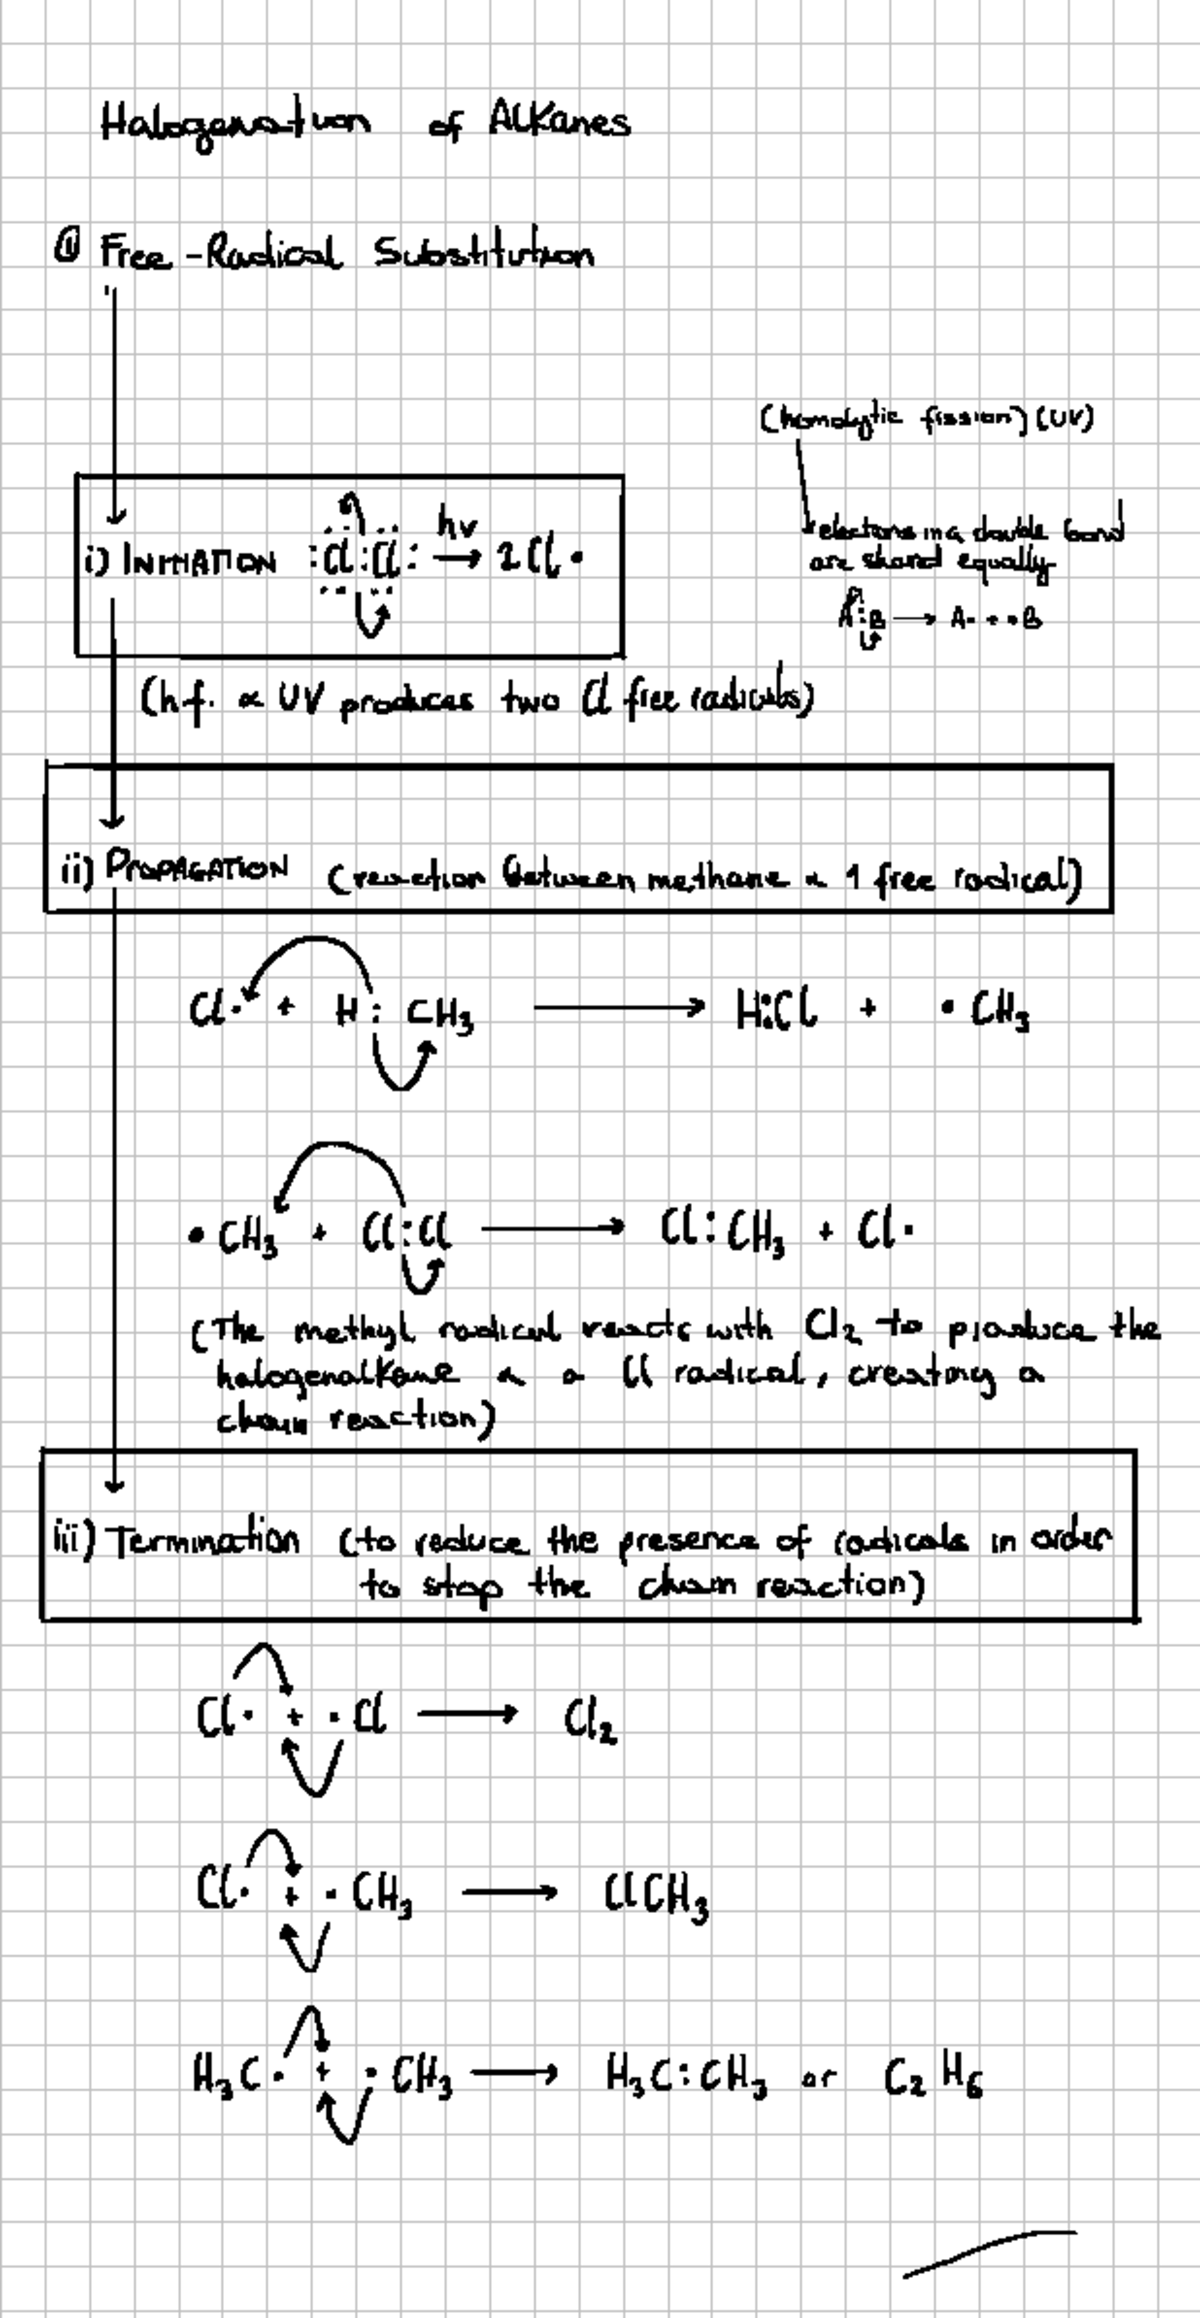 Halogenation of Alkanes
① Free-Radical Substitution
(homolytic fission) (UV)
electrons in a double bond
are shared equally
A:B → A· + ·B
i) INITIATION :Cl:Cl: hv → 2Cl·
(h.f. & UV produces two Cl free radicals)
ii) PROPAGATION (reaction between methane & 1 free radical)
Cl· + H : CH₃ → H:Cl + ·CH₃
·CH₃ + Cl:Cl → Cl:CH₃ + Cl·
(The methyl radical reacts with Cl₂ to produce the
halogenalkane & a Cl radical, creating a
chain reaction)
iii) Termination (to reduce the presence of radicals in order
to stop the chain reaction)
Cl· + ·Cl → Cl₂
Cl· + ·CH₃ → ClCH₃
H₃C· + ·CH₃ → H₃C:CH₃ or C₂H₆